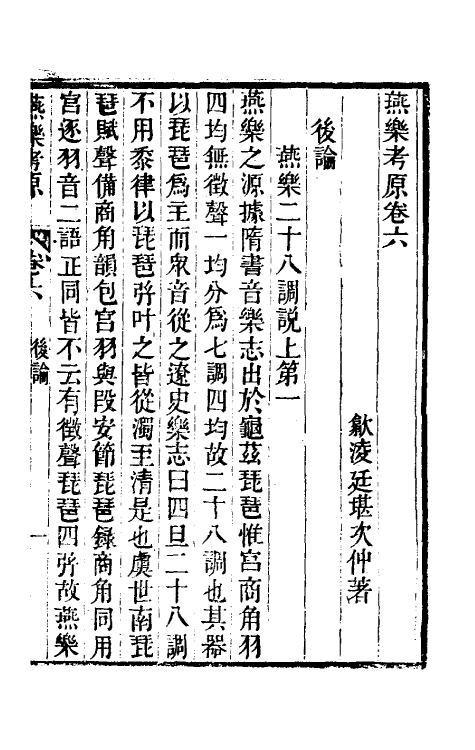 燕樂考原卷六
歙淩廷堪次仲著
後論
燕樂二十八調說上第一
燕樂之源據隋書音樂志出於龜茲琵琶惟宮商角羽
四均無徵聲一均分爲七調四均故二十八調也其器
以琵琶爲主而衆音從之遼史樂志曰四旦二十八調
不用黍律以琵琶弦叶之皆從濁至清是也虞世南琵
琶賦聲備商角韻包宮羽與段安節琵琶錄商角同用
宮逐羽音二語正同皆不云有徵聲琵琶四弦故燕樂
燕樂考原
卷六
後論
一